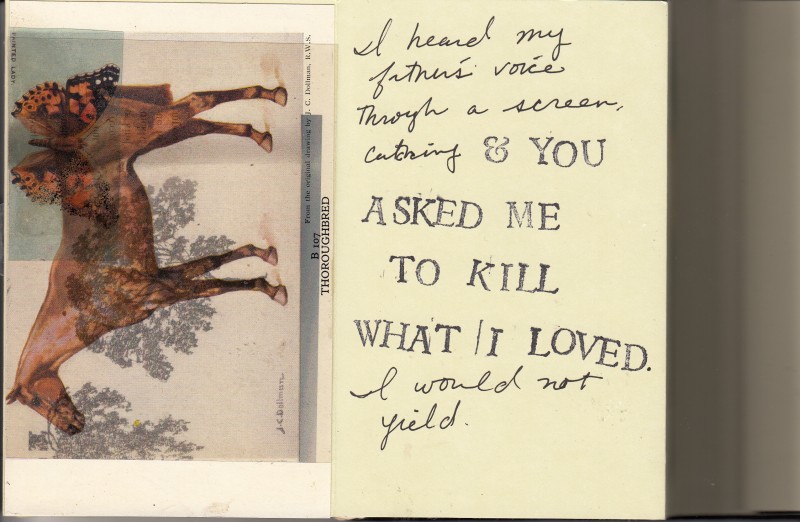 PAINTED LADY
From the original drawing by J. C. Dollman, R.W.S.
B 107
THOROUGHBRED
J.C. Dollman
I heard my
father's voice
through a screen,
catching & YOU
ASKED ME
TO KILL
WHAT / I LOVED.
I would not
yield.